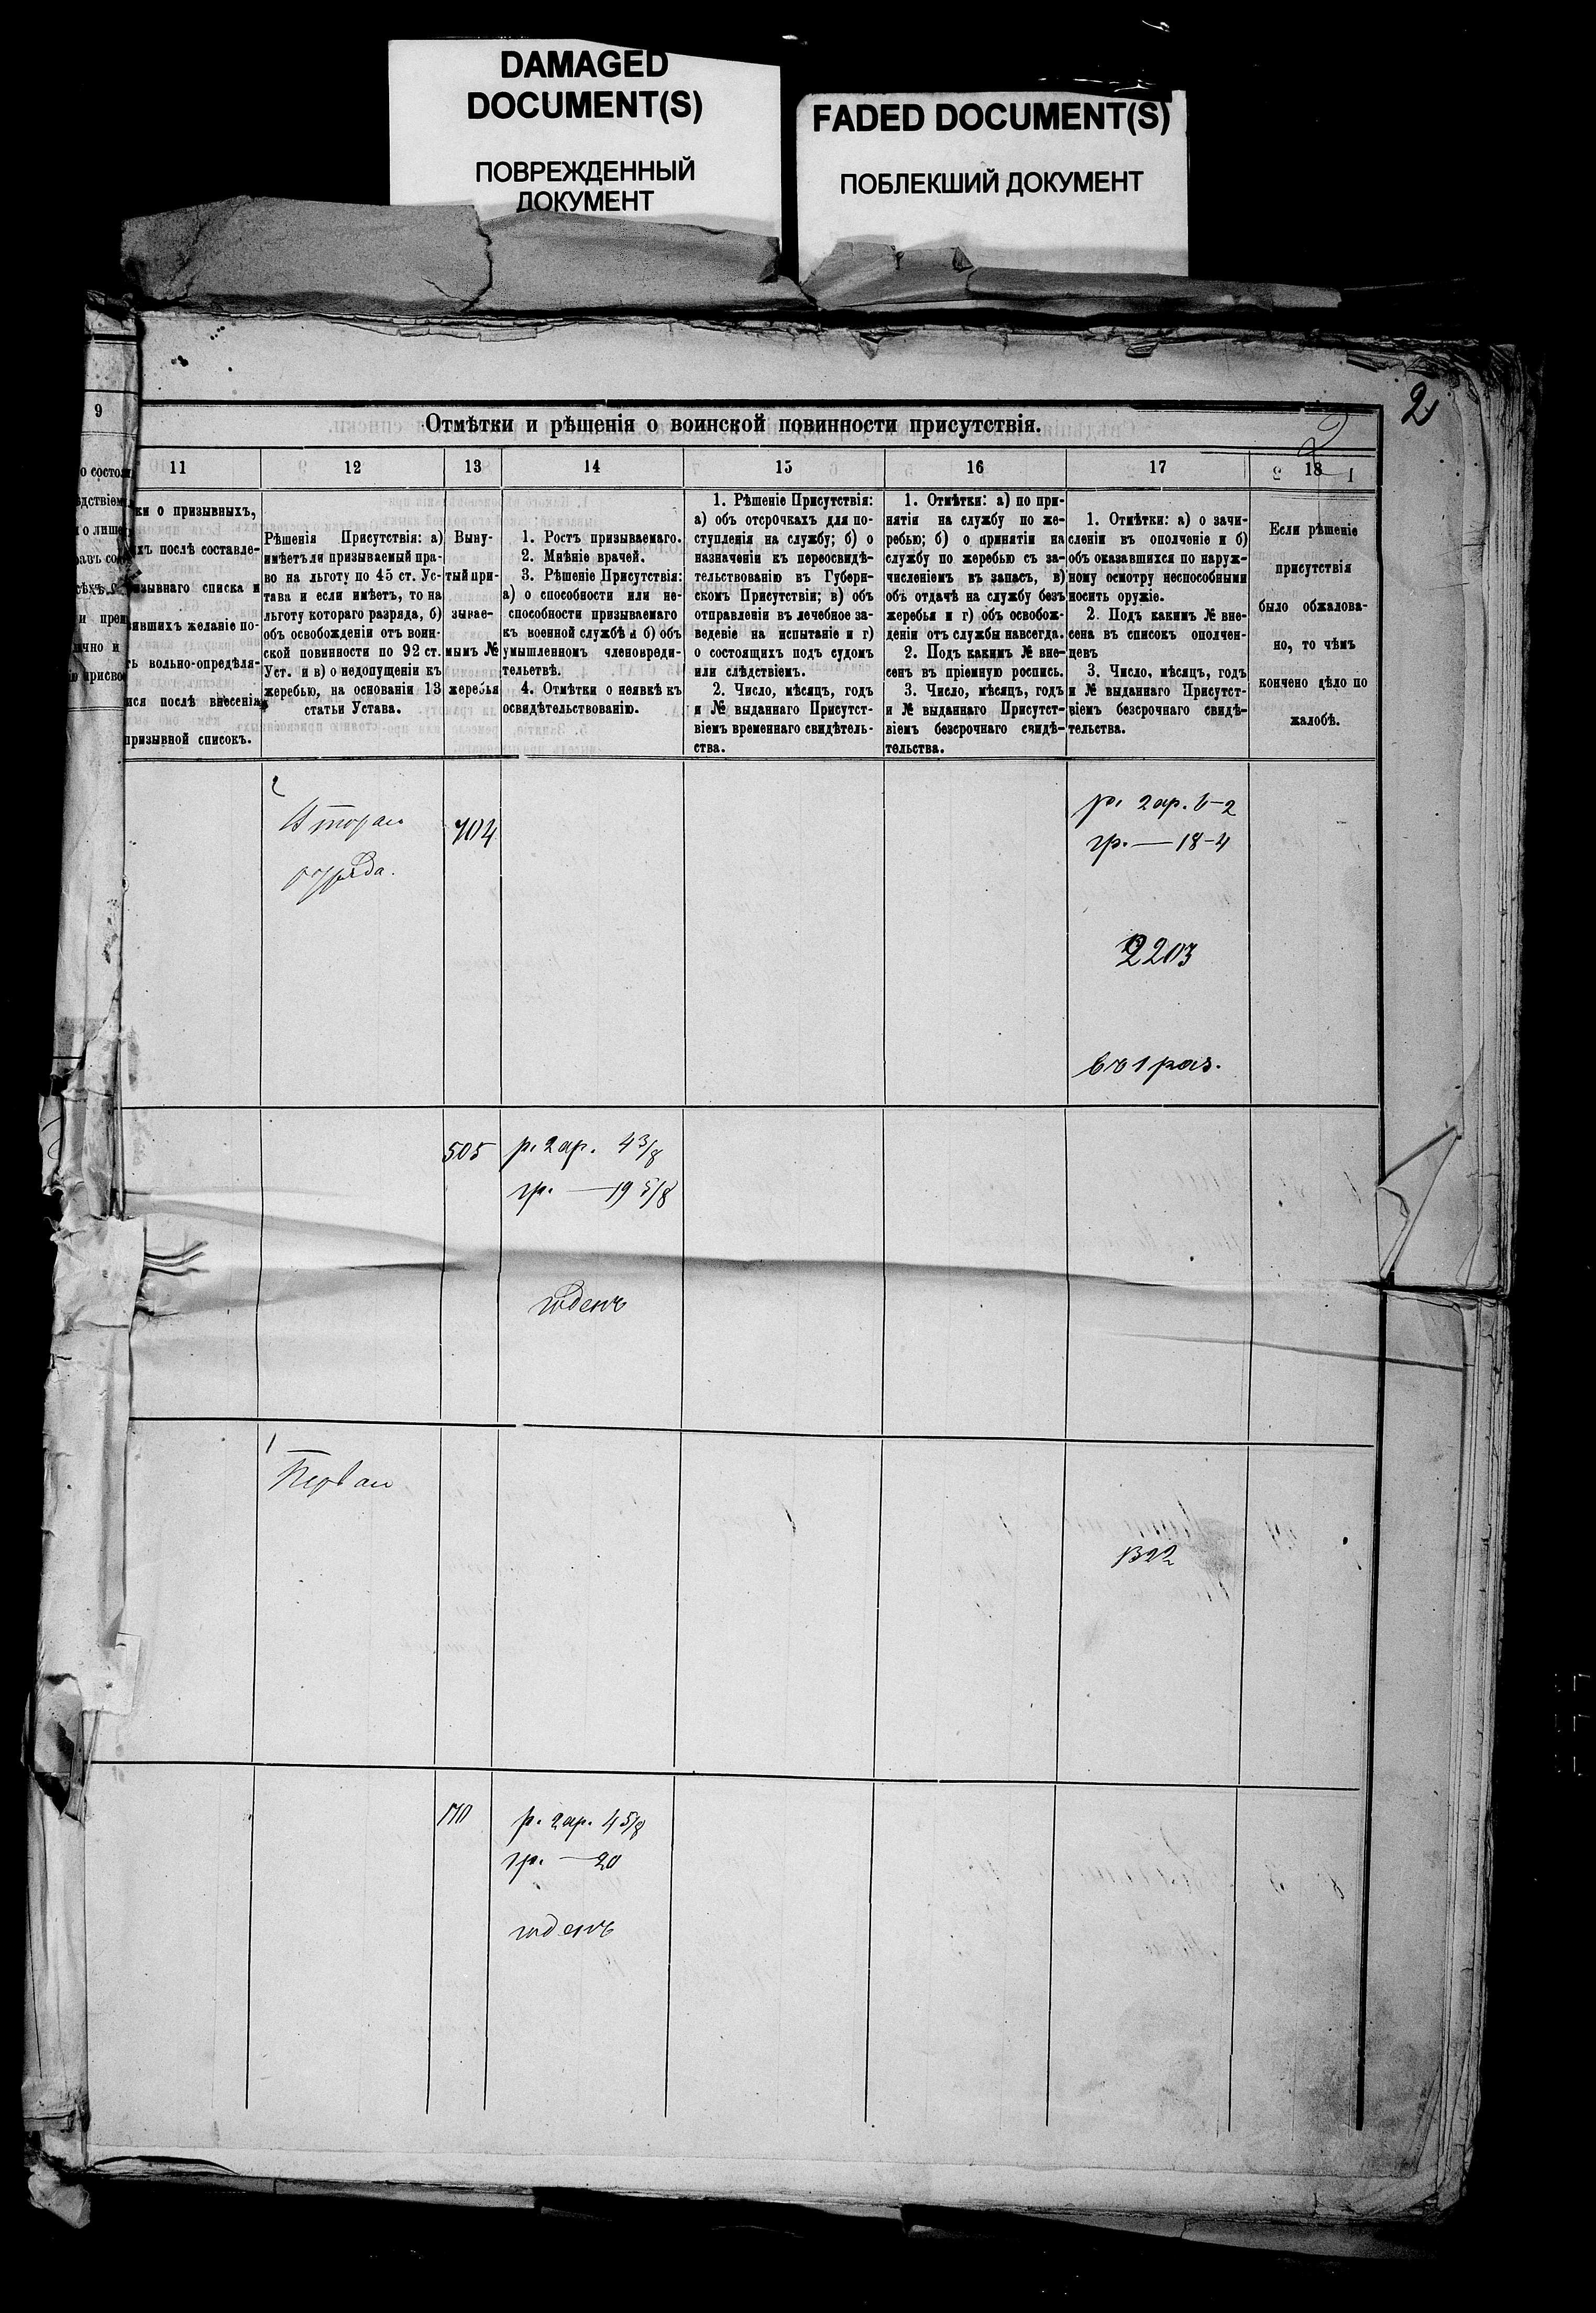 DAMAGED
DOCUMENT(S)
ПОВРЕЖДЕННЫЙ
ДОКУМЕНТ
FADED DOCUMENT(S)
ПОБЛЕКШИЙ ДОКУМЕНТ
2
Отмѣтки и рѣшенія о воинской повинности присутствія.
9
11
12
13
14
15
16
17
18
ки о призывныхъ,
ихъ послѣ составле-
призывнаго списка и
явившихъ желаніе по-
ть вольно-опредѣля-
ися послѣ внесенія
призывной списокъ.
Рѣшенія Присутствія: а)
имѣетъ ли призываемый пра-
во на льготу по 45 ст. Ус-
тава и если имѣетъ, то на
льготу котораго разряда, б)
объ освобожденіи отъ воин-
ской повинности по 92 ст.
Уст. и в) о недопущеніи къ
жеребью, на основаніи 13
статьи Устава.
Выну-
тый при-
зывае-
мымъ №
жеребья
1. Ростъ призываемаго.
2. Мнѣніе врачей.
3. Рѣшеніе Присутствія:
а) о способности или не-
способности призываемаго
къ военной службѣ и б) объ
умышленномъ членовреди-
тельствѣ.
4. Отмѣтки о неявкѣ къ
освидѣтельствованію.
1. Рѣшеніе Присутствія:
а) объ отсрочкахъ для по-
ступленія на службу; б) о
назначеніи къ переосвидѣ-
тельствованію въ Губерн-
скомъ Присутствіи; в) объ
отправленіи въ лечебное за-
веденіе на испытаніе и г)
о состоящихъ подъ судомъ
или слѣдствіемъ.
2. Число, мѣсяцъ, годъ
и № выданнаго Присутст-
віемъ временнаго свидѣтель-
ства.
1. Отмѣтки: а) по при-
нятіи на службу по же-
ребью; б) о принятіи на
службу по жеребью съ за-
численіемъ въ запасъ, в)
объ отдачѣ на службу безъ
жеребья и г) объ освобож-
деніи отъ службы навсегда.
2. Подъ какимъ № вне-
сенъ въ пріемную роспись.
3. Число, мѣсяцъ, годъ
и № выданнаго Присутст-
віемъ безсрочнаго свидѣ-
тельства.
1. Отмѣтки: а) о зачи-
сленіи въ ополченіе и б)
объ оказавшихся по наруж-
ному осмотру неспособными
носить оружіе.
2. Подъ какимъ № вне-
сена въ списокъ ополчен-
цевъ
3. Число, мѣсяцъ, годъ
и № выданнаго Присутст-
віемъ безсрочнаго свидѣ-
тельства.
Если рѣшеніе
присутствія
было обжалова-
но, то чѣмъ
кончено дѣло по
жалобѣ.
2
Вторая
704
р. 2 ар. 6-2
гр. — 18-4
2203
въ 1 раз.
505
р. 2 ар. 4 3/8
гр. — 19 5/8
годенъ
1
Первая
1322
р. 2 ар. 4 5/8
гр. — 20
годенъ